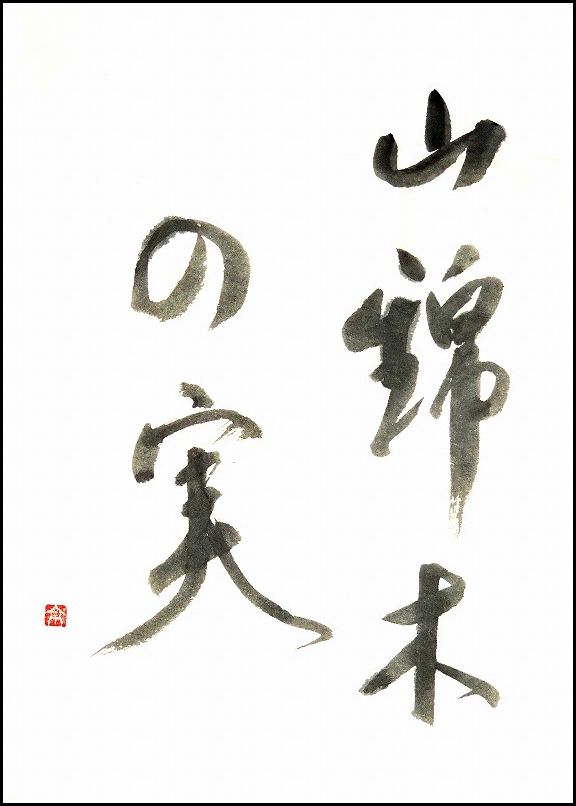 山錦木
の実